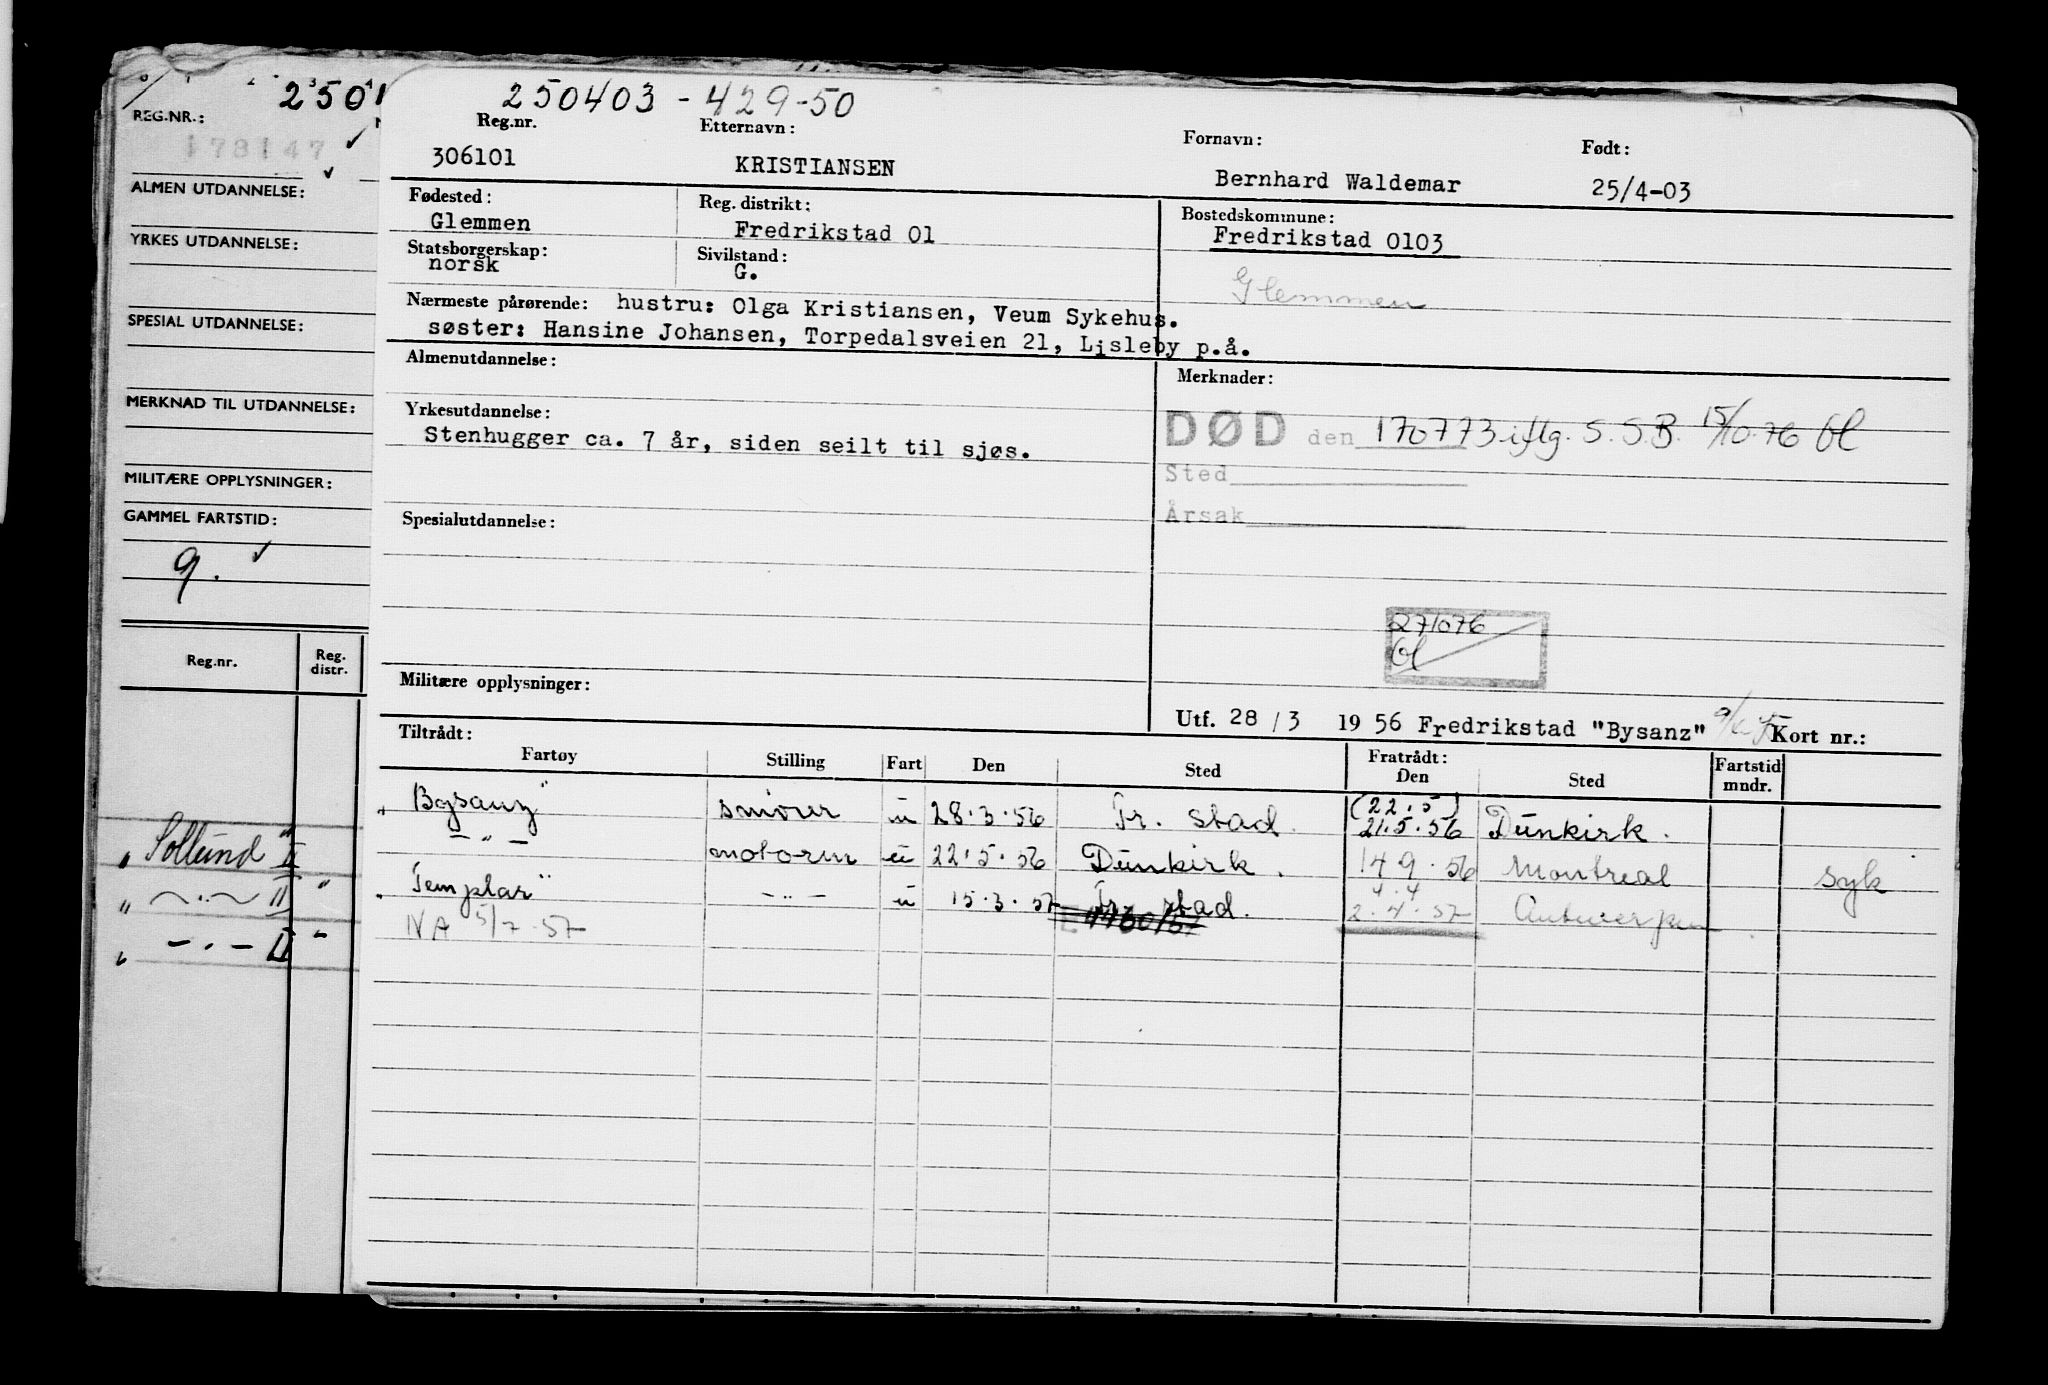 250403-429-50
Reg.nr. Etternavn: Fornavn: Født:
306101 KRISTIANSEN Bernhard Waldemar 25/4-03
Fødested: Reg. distrikt: Bostedskommune:
Glemmen Fredrikstad 01 Fredrikstad 0103
Statsborgerskap: Sivilstand:
norsk G. Glemmen
Nærmeste pårørende: hustru: Olga Kristiansen, Veum Sykehus.
søster: Hansine Johansen, Torpedalsveien 21, Lisleby p.å.
Almenutdannelse: Merknader:
Yrkesutdannelse: DØD den 170773 iflg. S.S.B. 15/10-76
Stenhugger ca. 7 år, siden seilt til sjøs.
Sted
Spesialutdannelse: Årsak
271076
Militære opplysninger:
Utf. 28/3 1956 Fredrikstad "Bysanz" Kort nr.:
Tiltrådt: Fratrådt:
Fartøy Stilling Fart Den Sted Den Sted Fartstid mndr.
(22.5)
"Bysanz" smører u 28.3.56 Fr. stad. 21.5.56 Dunkirk.
— " — motorm u 22.5.56 Dunkirk. 14 9.56 Montreal syk
4.4
"Templar" — " — u 15.3.57 Fr. stad. 2.4.57 Antwerpen
NA 5/7.57 4460/57
2501
REG.NR.:
178147
ALMEN UTDANNELSE:
YRKES UTDANNELSE:
SPESIAL UTDANNELSE:
MERKNAD TIL UTDANNELSE:
MILITÆRE OPPLYSNINGER:
GAMMEL FARTSTID:
9.
Reg.nr. Reg. distr.
"Sollund" II
" — " — II "
" — " — II "